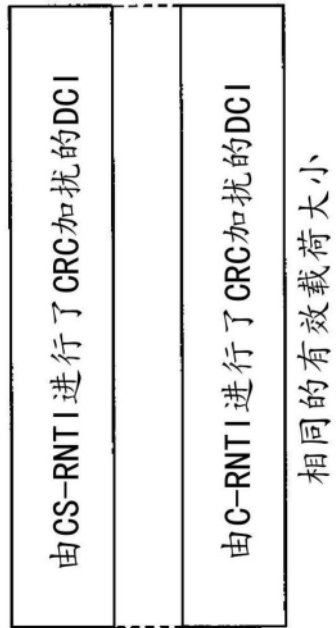 由CS-RNTI进行了CRC加扰的DCI
由C-RNTI进行了CRC加扰的DCI
相同的有效载荷大小